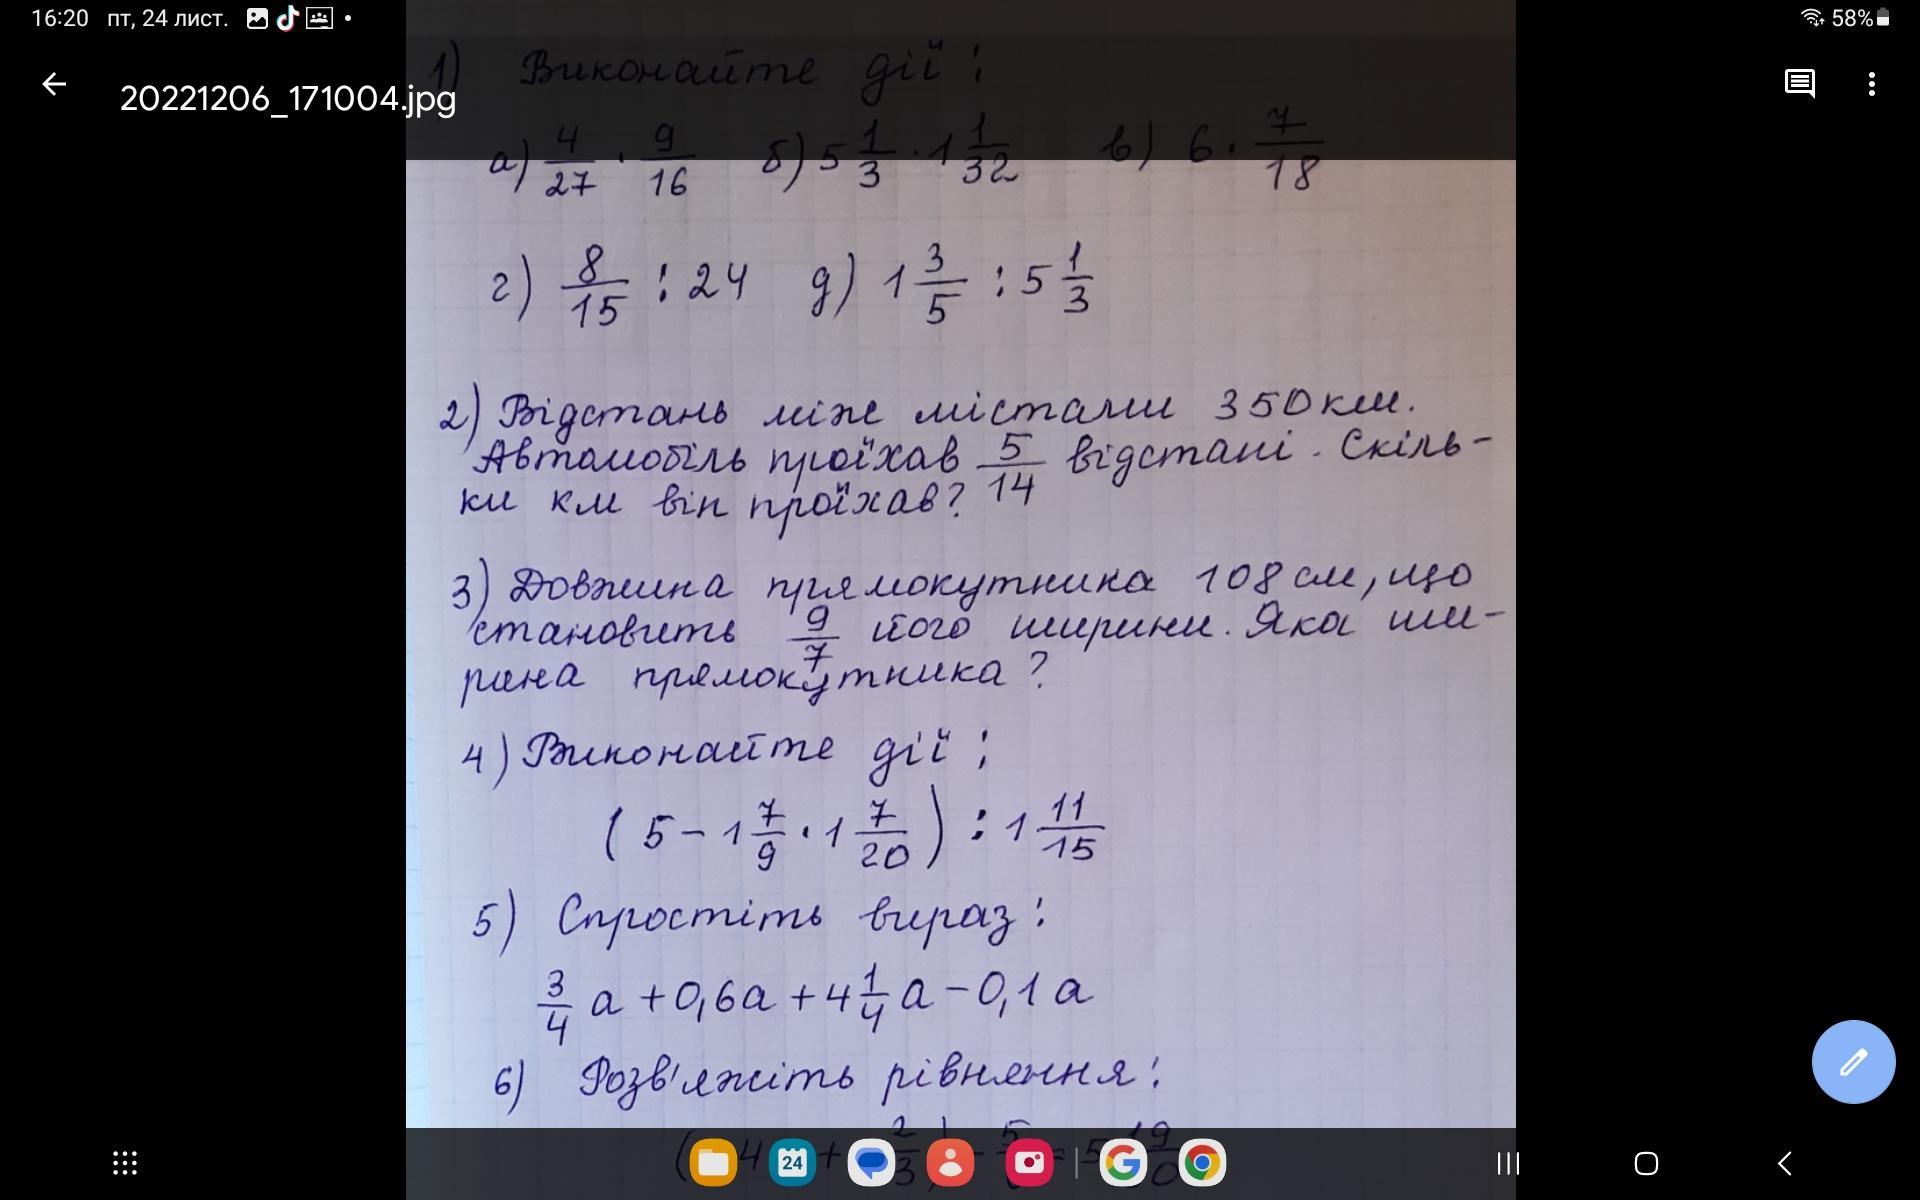 16:20 пт, 24 лист.
58%
20221206_171004.jpg
1) Виконайте дії:
а) 4/27 · 9/16 б) 5 1/3 · 1 1/32 в) 6 · 7/18
г) 8/15 : 24 д) 1 3/5 : 5 1/3
2) Відстань між містами 350 км.
Автомобіль проїхав 5/14 відстані. Скіль-
ки км він проїхав?
3) Довжина прямокутника 108 см, що
становить 9/7 його ширини. Яка ши-
рина прямокутника?
4) Виконайте дії:
(5 - 1 7/9 · 1 7/20) : 1 11/15
5) Спростіть вираз:
3/4 a + 0,6a + 4 1/4 a - 0,1a
6) Розв'яжіть рівняння:
24